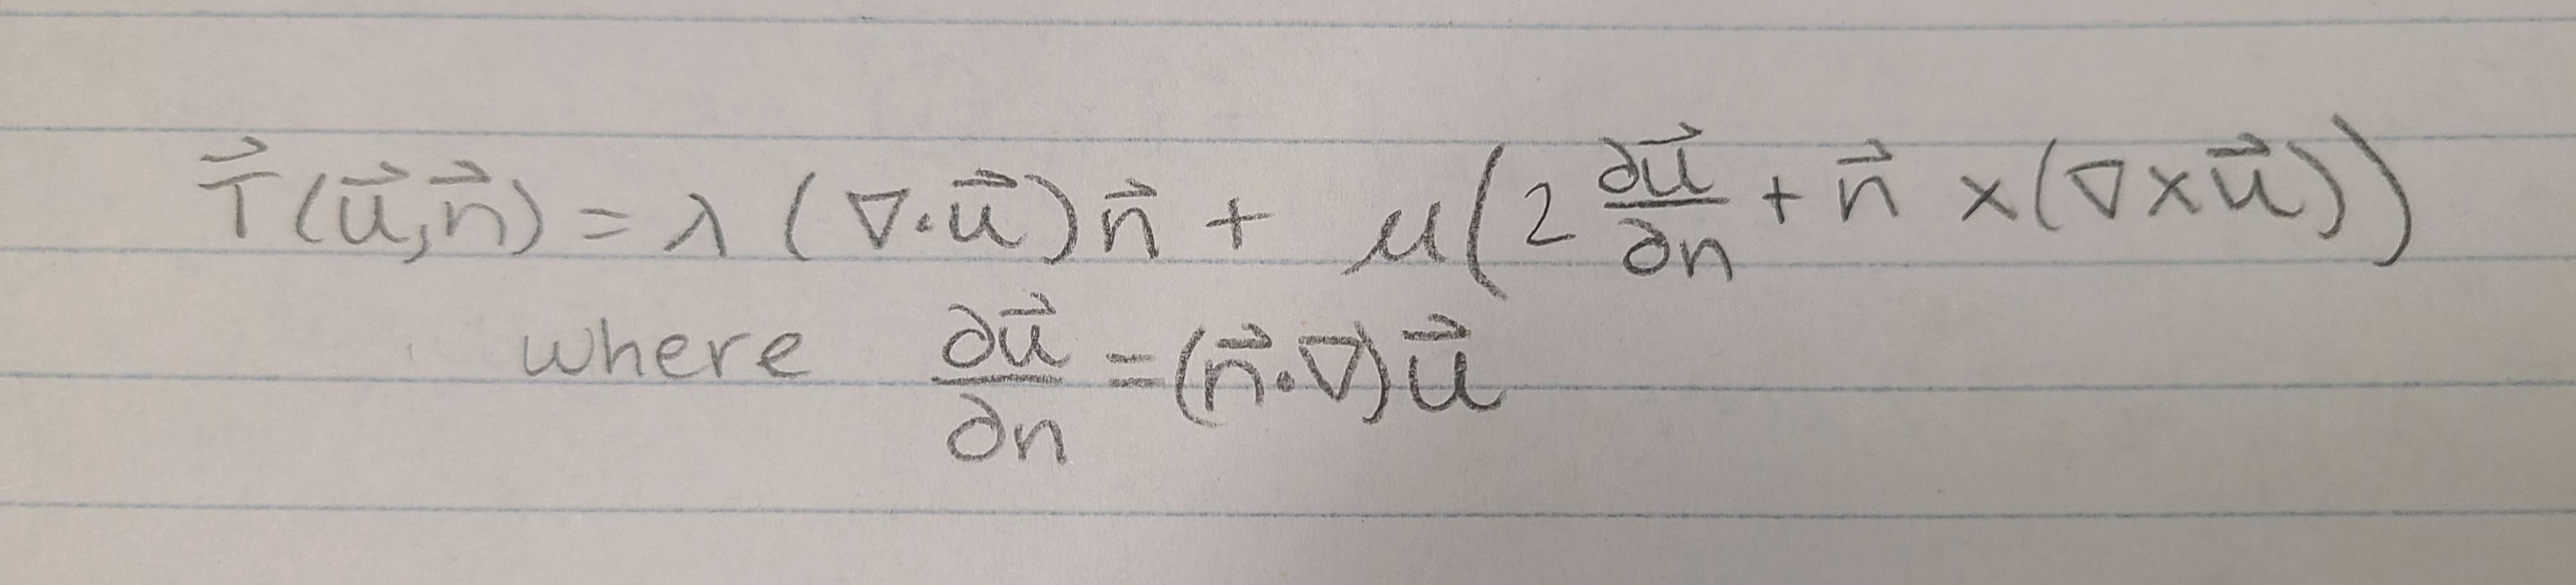 T⃗(u⃗,n⃗) = λ (∇·u⃗)n⃗ + μ(2 ∂u⃗/∂n + n⃗ ×(∇×u⃗))
where ∂u⃗/∂n = (n⃗·∇)u⃗